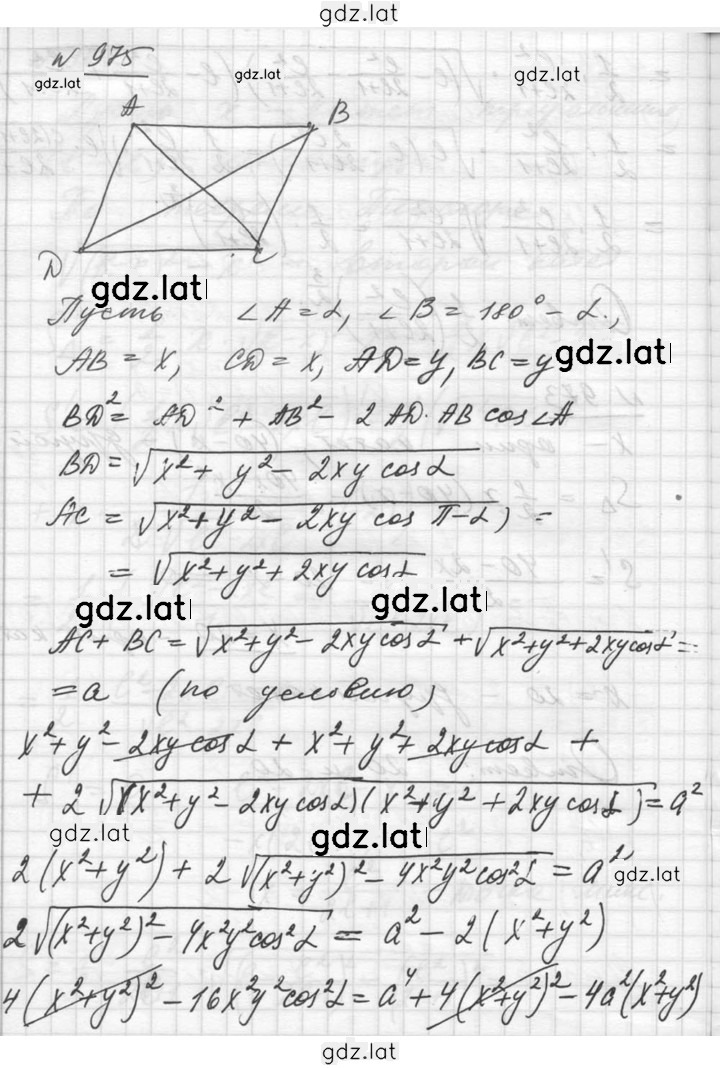 gdz.lat
N 975
gdz.lat gdz.lat gdz.lat
A B
D C
gdz.lat
Пусть ∠A = α, ∠B = 180° − α,
AB = x, CD = x, AD = y, BC = y
gdz.lat
BD² = AD² + AB² − 2 AD · AB cos∠A
BD = √(x² + y² − 2xy cos α)
AC = √(x² + y² − 2xy cos π−α) =
= √(x² + y² + 2xy cos α)
gdz.lat gdz.lat
AC + BC = √(x² + y² − 2xy cos α) + √(x² + y² + 2xy cos α) =
= a (по условию)
x² + y² − 2xy cos α + x² + y² + 2xy cos α +
+ 2√((x² + y² − 2xy cos α)(x² + y² + 2xy cos α)) = a²
gdz.lat gdz.lat
2(x² + y²) + 2√((x² + y²)² − 4x²y² cos² α) = a²
gdz.lat
2√((x² + y²)² − 4x²y² cos² α) = a² − 2(x² + y²)
4(x² + y²)² − 16x²y² cos² α = a⁴ + 4(x² + y²)² − 4a²(x² + y²)
gdz.lat